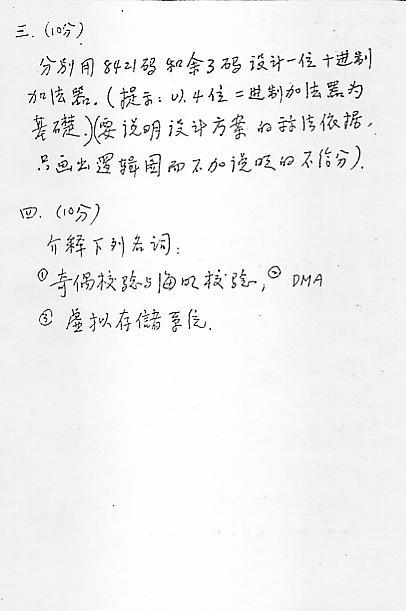 三.(10分)
分别用8421码和余3码设计一位十进制
加法器.(提示:以4位二进制加法器为
基礎.)(要说明设计方案的称法依据,
只画出逻辑图而不加说明的不给分).
四.(10分)
介释下列名词:
①奇偶校验与海明校验,②DMA
③虚拟存儲系统.